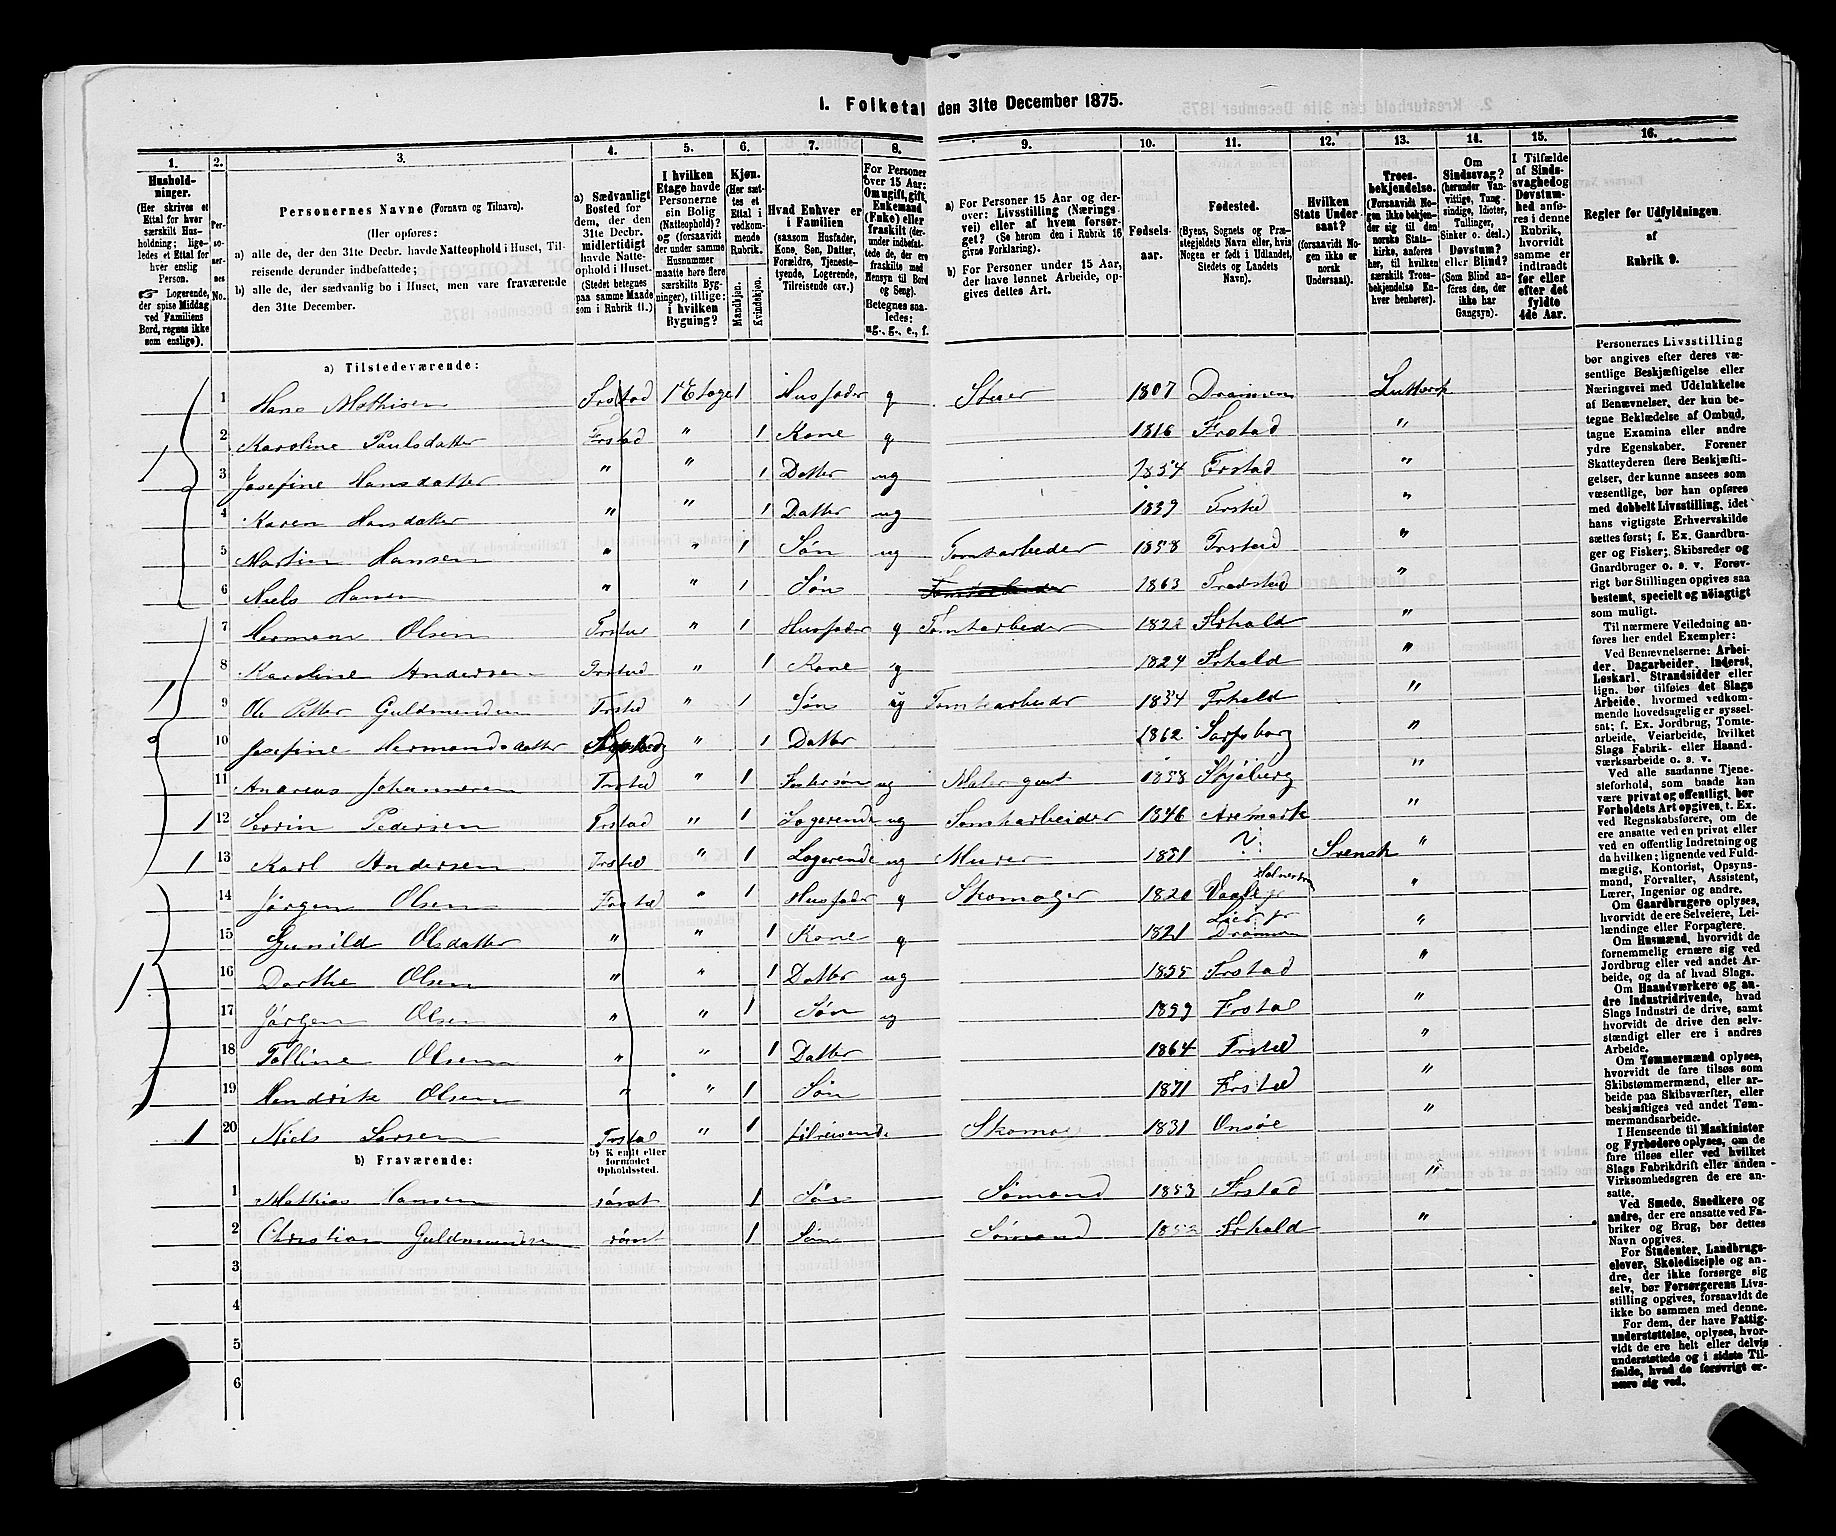 1. Folketal den 31te December 1875.
1. 2. 3. 4. 5. 6. 7. 8. 9. 10. 11. 12. 13. 14. 15. 16.
Hushold-
ninger.
(Her skrives et
Ettal for hver
særskilt Hus-
holdning; lige-
ledes et Ettal
for hver
enslig
Person.
☞ Logerende,
der spise Middag
ved Familiens
Bord, regnes ikke
som enslige).
Per-
so-
ner-
nes
No.
Personernes Navne (Fornavn og Tilnavn).
(Her opføres:
a) alle de, der den 31te Decbr. havde Natteophold i Huset, Til-
reisende derunder indbefattede;
b) alle de, der sædvanlig bo i Huset, men vare fraværende
den 31te December.
a) Sædvanligt
Bosted for
dem, der den
31te Decbr.
midlertidigt
havde Natte-
ophold i Huset.
(Stedet betegnes
paa samme Maade
som i Rubrik 11.)
I hvilken
Etage havde
Personerne
sin Bolig
(Natteophold)?
og (forsaavidt
der under samme
Husnummer
maatte høre flere
særskilte Byg-
ninger), tillige:
i hvilken
Bygning?
Kjøn.
(Her sæt-
tes et
Ettal i
vedkom-
mende
Rubrik.
Mandkjøn.
Kvindekjøn.
Hvad Enhver er
i Familien
(saasom Husfader,
Kone, Søn, Datter,
Forældre, Tjeneste-
tyende, Logerende,
Tilreisende osv.)
For Personer
over 15 Aar:
Om ugift, gift,
Enkemand
(Enke) eller
fraskilt (der-
under indbefat-
tede de, der ere
fraskilte med
Hensyn til Bord
og Seng).
Betegnes saa-
ledes:
ug., g., e., f.
a) For Personer 15 Aar og der-
over: Livsstilling (Nærings-
vei) eller af hvem forsør-
get? (Se herom den i Rubrik 16
givne Forklaring).
b) For Personer under 15 Aar,
der have lønnet Arbeide, op-
gives dettes Art.
Fødsels-
aar.
Fødested.
(Byens, Sognets og Præ-
stegjeldets Navn eller, hvis
Nogen er født i Udlandet,
Stedets og Landets
Navn).
Hvilken
Stats Under-
saat?
(forsaavidt No-
gen ikke er
norsk
Undersaat).
Troes-
bekjendelse.
(Forsaavidt No-
gen ikke bekjen-
der sig til den
norske Stats-
kirke, anføres
her, til hvilken
særskilt Troes-
bekjendelse En-
hver henhører).
Om
Sindssvag?
(herunder Van-
vittige, Tung-
sindige, Idioter,
Tullinger,
Sinker o. desl.)
Døvstum?
eller Blind?
(Som Blind an-
føres den, der
ikke har
Gangsyn).
I Tilfælde
af Sinds-
svaghed og
Døvstum-
hed anfø-
res i denne
Rubrik,
hvorvidt
samme er
indtraadt
før eller
efter det
fyldte
4de Aar.
Regler for Udfyldningen
af
Rubrik 9.
a) Tilstedeværende:
1 Hans Mathisen Frstad 1ste Etage 1 Husfader g 1807 Dramen Luthersk
1 2 Karoline Paulsdatter Frstad " 1 Kone g 1816 Frstad "
3 Josefine Hansdatter " " 1 Datter ug 1854 Frstad "
4 Karen Hansdatter " " 1 Datter ug 1839 Frsted "
5 Martin Hansen " " 1 Søn ug Tomtarbeider 1858 Frstad "
6 Niels Hansen " " 1 Søn Tomtarbeider 1863 Fredsted "
7 Herman Olsen Frstad " 1 Husfader g Tomtarbeder 1822 Frhald "
8 Karoline Andersen Frstad " 1 Kone g 1824 Frhald "
1 9 Ole Petter Guldmundsen Frsted " 1 Søn ug Tomtarbeidr 1854 Frhald "
10 Josefine Hermandsdatter " 1 Datter 1862 Sarpsborg "
11 Andreas Johannesen Frsted " 1 Fostersøn ug Maler gut 1858 Skjeberg "
1 12 Sørrin Pedersen Frstad " 1 Logerende ug Tomtarbeider 1846 Aremark "
1 13 Karl Andersen Frsted " 1 Logerende ug Murer 1851 ? Svensk "
14 Jørgen Olsen Frsted " 1 Husfader g Skomager 1820 Vaale pr "
15 Gunild Olsdatter " " 1 Kone g 1821 Lier pr Dramen "
1 16 Dorthe Olsen " " 1 Datter ug 1855 Frstad "
17 Jørgen Olsen " " 1 Søn ug 1859 Frstad "
18 Talline Olsen " " 1 Datter 1864 Frsted "
19 Hendrik Olsen " " 1 Søn 1871 Frsted "
1 20 Niels Larsen Frstad " 1 tilreisende Skomager 1831 Onsøe "
b) Fraværende:
b) Kjendt eller
formodet
Opholdssted.
1 Mathias Hansen 1 Søn Sømand 1853 Frstad "
2 Christian Guldmundsen 1 Søn Sømand 1852 Frhald "
3
4
5
6
Personernes Livsstilling
bør angives efter deres væ-
sentlige Beskjæftigelse eller
Næringsvei med Udelukkelse
af Benævnelser, der kun be-
tegne Beklædelse af Ombud,
tagne Examina eller andre
ydre Egenskaber. Forener
Skatteyderen flere Beskjæfti-
gelser, der kunne ansees som
væsentlige, bør han opføres
med dobbelt Livsstilling, idet
hans vigtigste Erhvervskilde
sættes først; f. Ex. Gaardbru-
ger og Fisker; Skibsreder og
Gaardbruger o. s. v. Forøv-
rigt bør Stillingen opgives saa
bestemt, specielt og nøiagtigt
som muligt.
Til nærmere Veiledning an-
føres her endel Exempler:
Ved Benævnelserne: Arbei-
der, Dagarbeider, Inderst,
Løskarl, Strandsidder eller
lign. bør tilføies det Slags
Arbeide, hvormed vedkom-
mende hovedsagelig er syssel-
sat; f. Ex. Jordbrug, Tomte-
arbeide, Veiarbeide, hvilket
Slags Fabrik- eller Haand-
værksarbeide o. s. v.
Ved alle saadanne Tjene-
steforhold, som baade kan
være privat og offentligt, bør
Forholdets Art opgives, t. Ex.
ved Regnskabsførere, om de
ere ansatte ved en privat eller
ved en offentlig Indretning og
da hvilken; lignende ved Fuld-
mægtig, Kontorist, Opsyns-
mand, Forvalter, Assistent,
Lærer, Ingeniør og andre.
Om Gaardbrugere oplyses,
hvorvidt de ere Selveiere, Lei-
lændinge eller Forpagtere.
Om Husmænd, hvorvidt de
fornemmelig ernære sig ved
Jordbrug eller ved andet Ar-
beide, og da af hvad Slags.
Om Haandværkere og an-
dre Industridrivende, hvad
Slags Industri de drive, samt
hvorvidt de drive den selv-
stændigt eller ere i andres
Arbeide.
Om Tømmermænd oplyses,
hvorvidt de fare tilsøs som
Skibstømmermænd, eller ar-
beide paa Skibsværfter, eller
beskjæftiges ved andet Tøm-
mermandsarbeide.
I Henseende til Maskinister
og Fyrbødere oplyses, om de
fare tilsøs eller ved hvilket
Slags Fabrikdrift eller anden
Virksomhedsgren de ere an-
satte.
Ved Smede, Snedkere og
andre, der ere ansatte ved Fa-
briker og Brug, bør dettes
Navn opgives.
For Studenter, Landbrugs-
elever, Skoledisciple og an-
dre, der ikke forsørge sig
selv, bør Forsørgerens Livs-
stilling opgives, forsaavidt de
ikke bo sammen med denne.
For dem, der have Fattig-
understøttelse, oplyses, hvor-
vidt de ere helt eller delvis
understøttede og i sidste Til-
fælde, hvad de forøvrigt er-
nære sig ved.